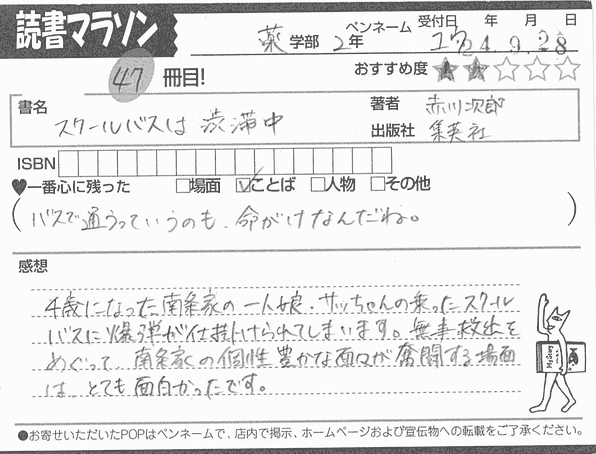 読書マラソン
薬 学部 2年 ペンネーム 受付日 年 月 日
24.9.28
47 冊目! おすすめ度 ★★☆☆☆
書名 スクールバスは渋滞中
著者 赤川次郎
出版社 集英社
ISBN
♥一番心に残った □場面 ☑ことば □人物 □その他
(バスで通うっていうのも、命がけなんだね。)
感想
4歳になった南条家の一人娘・サッちゃんの乗ったスクール
バスに爆弾が仕掛けられてしまいます。無事救出を
めぐって、南条家の個性豊かな面々が奮闘する場面
は、とても面白かったです。
●お寄せいただいたPOPはペンネームで、店内で掲示、ホームページおよび宣伝物への転載をご了承ください。